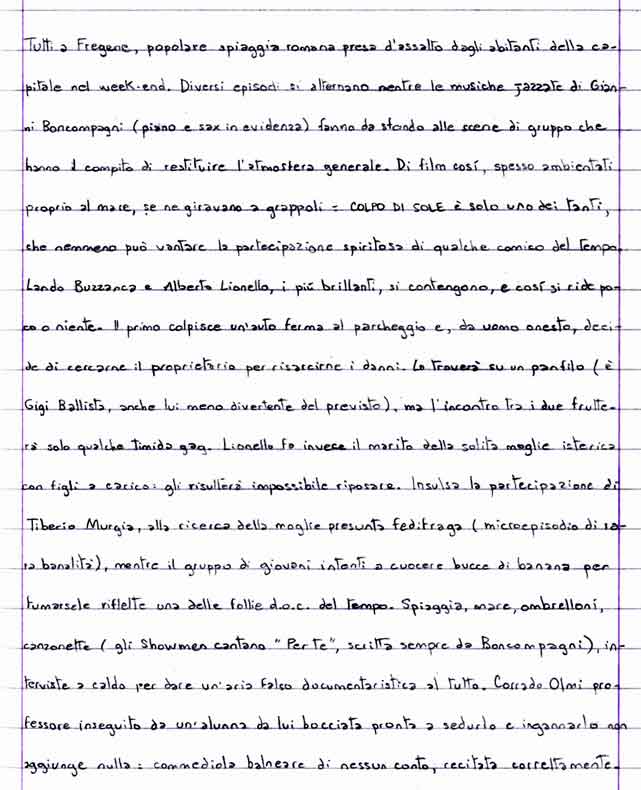 Tutti a Fregene, popolare spiaggia romana presa d'assalto dagli abitanti della ca-
pitale nel week-end. Diversi episodi si alternano mentre le musiche jazzate di Gian-
ni Boncompagni (piano e sax in evidenza) fanno da sfondo alle scene di gruppo che
hanno il compito di restituire l'atmosfera generale. Di film così, spesso ambientati
proprio al mare, se ne giravano a grappoli: COLPO DI SOLE è solo uno dei tanti,
che nemmeno può vantare la partecipazione spiritosa di qualche comico del tempo.
Lando Buzzanca e Alberto Lionello, i più brillanti, si contengono, e così si ride po-
co o niente. Il primo colpisce un'auto ferma al parcheggio e, da uomo onesto, deci-
de di cercarne il proprietario per risarcirne i danni. Lo troverà su un panfilo (è
Gigi Ballista, anche lui meno divertente del previsto), ma l'incontro tra i due frutte-
rà solo qualche timida gag. Lionello fa invece il marito della solita moglie isterica
con figli a carico: gli risulterà impossibile riposare. Insulsa la partecipazione di
Tiberio Murgia, alla ricerca della moglie presunta fedifraga (microepisodio di ra-
ra banalità), mentre il gruppo di giovani intenti a cuocere bucce di banana per
fumarsele riflette una delle follie d.o.c. del tempo. Spiaggia, mare, ombrelloni,
canzonette (gli Showmen cantano "Per te", scritta sempre da Boncompagni), in-
terviste a caldo per dare un'aria falso documentaristica al tutto. Corrado Olmi pro-
fessore inseguito da un'alunna da lui bocciata pronta a sedurlo e ingannarlo non
aggiunge nulla: commediola balneare di nessun conto, recitata correttamente.